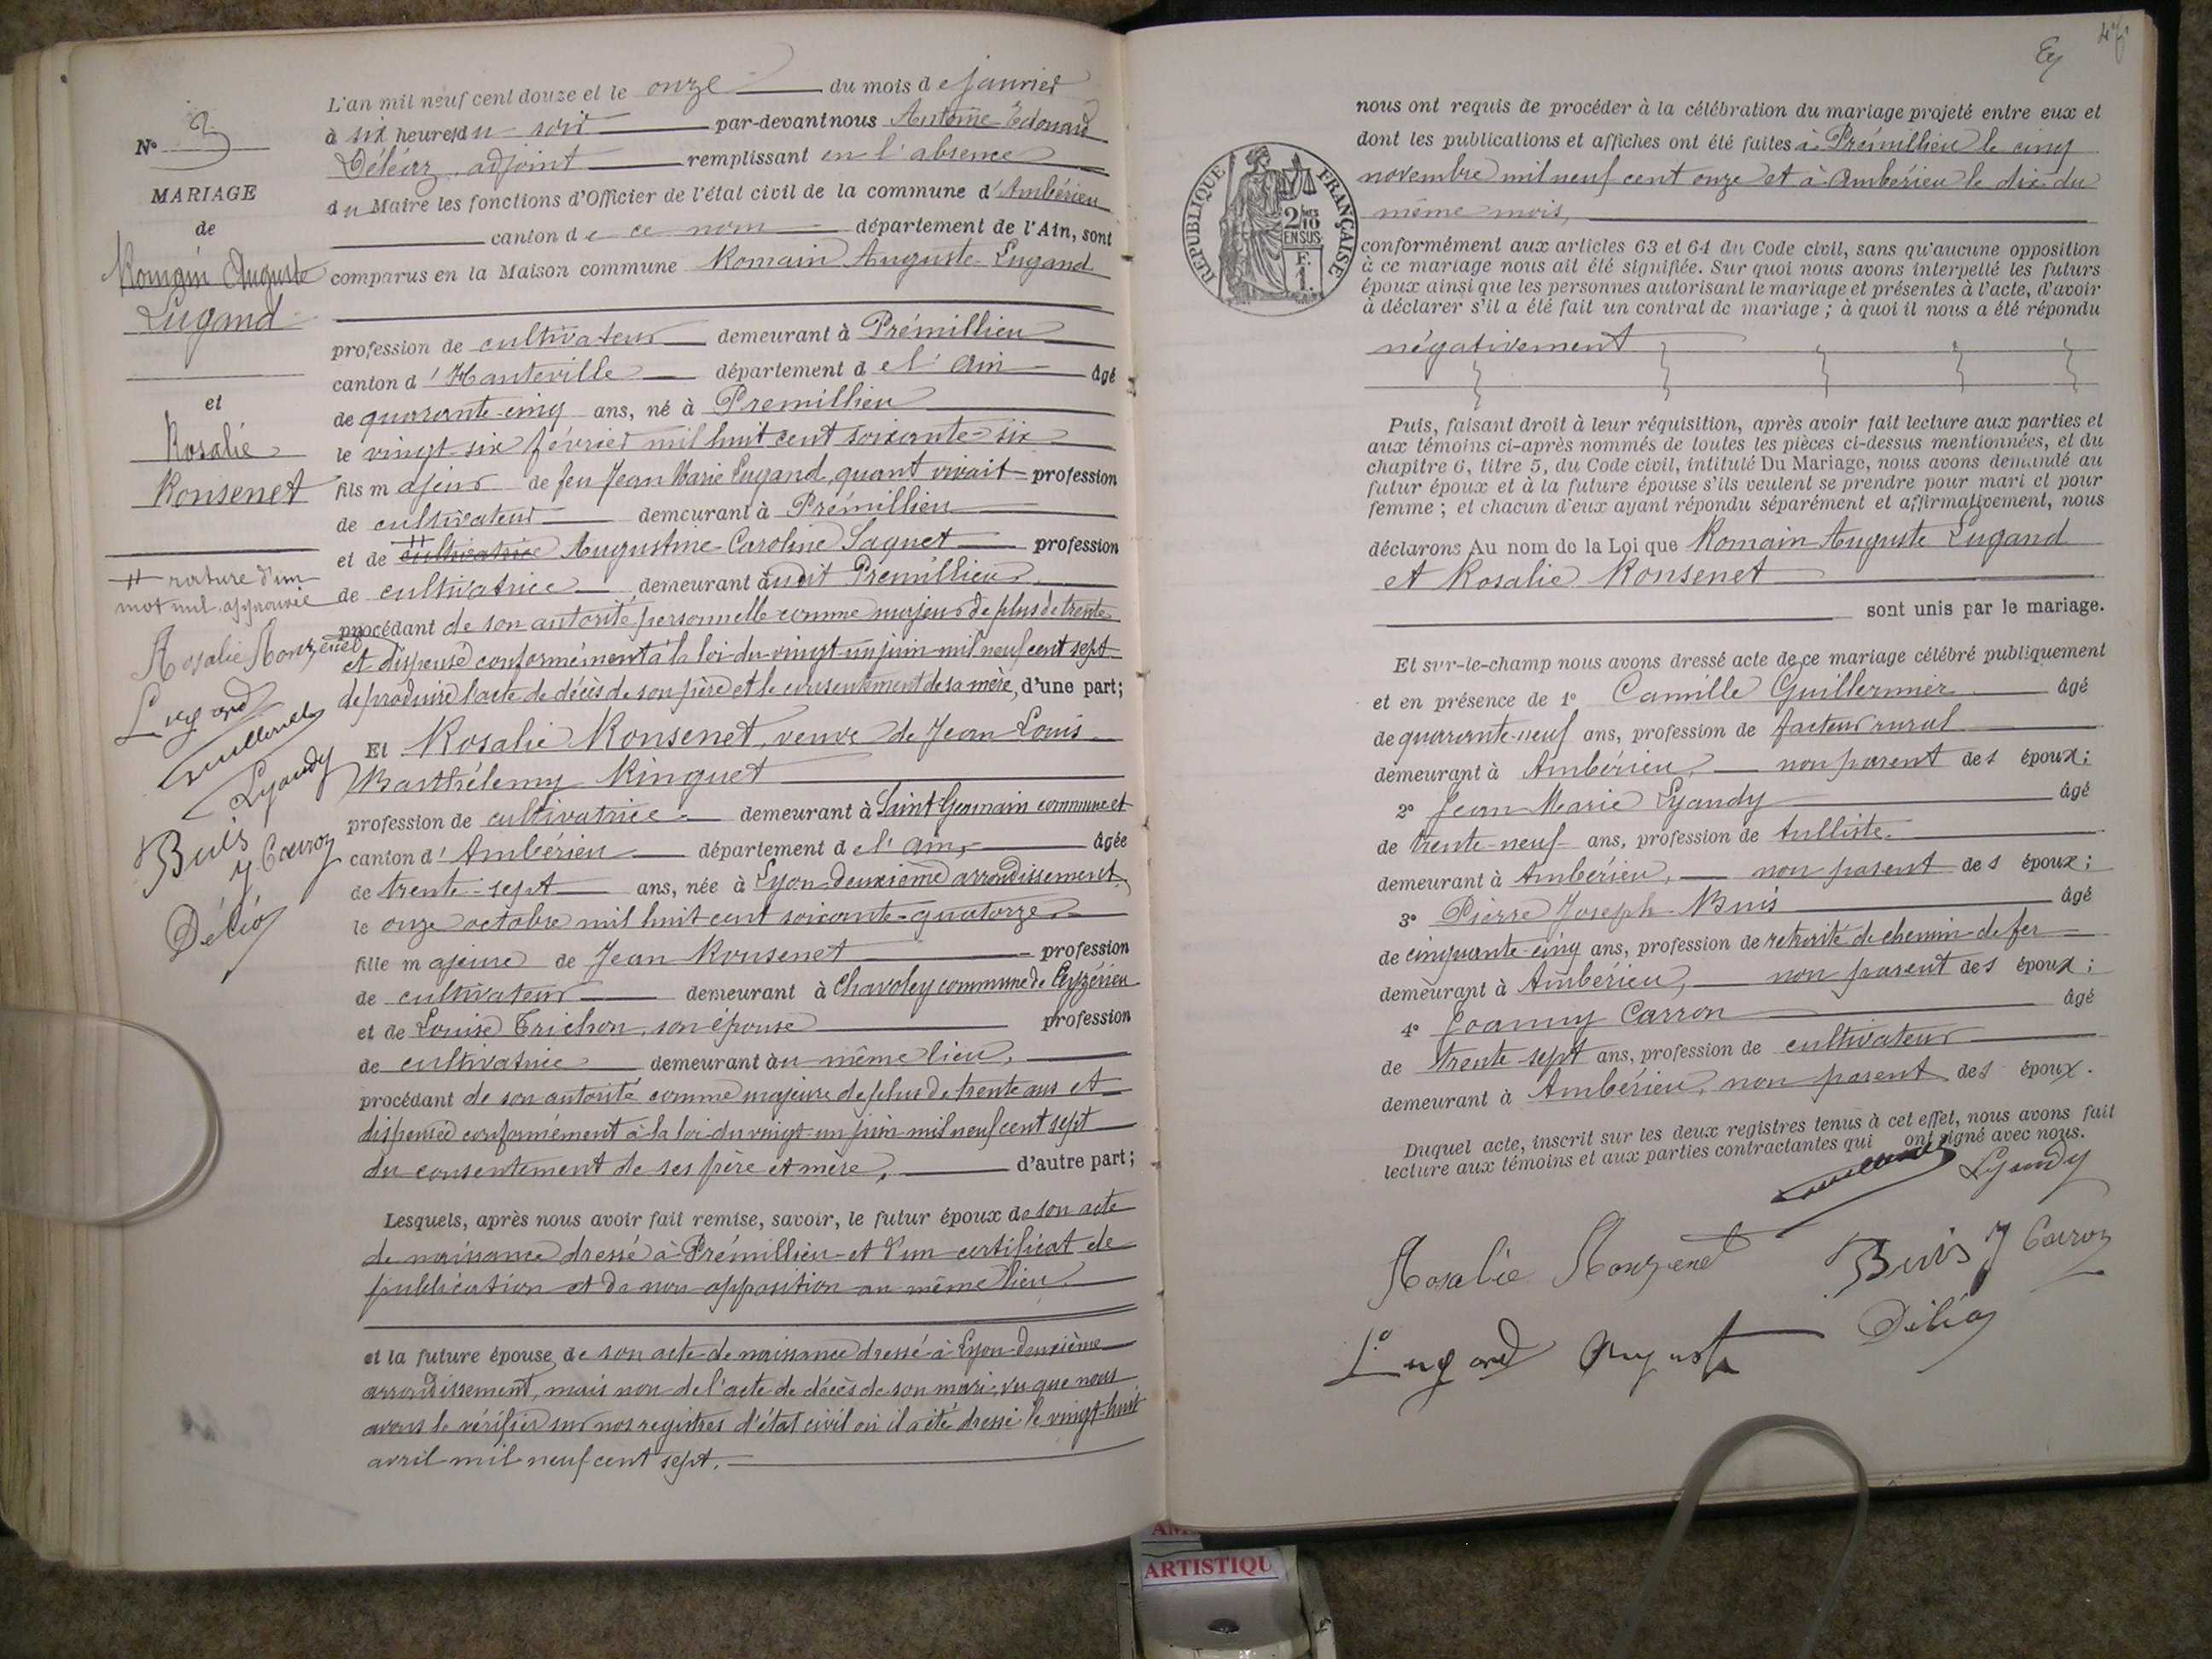 L'an mil neuf cent douze et le onze du mois de janvier
à six heures du soir par-devant nous Antoine Edouard
adjoint remplissant en l'absence
du Maire les fonctions d'Officier de l'état civil de la commune d'Ambérieu
canton de ce nom département de l'Ain, sont
comparus en la Maison commune Romain Auguste Lugand
profession de cultivateur demeurant à Prémillieu
canton d'Hauteville département de l'Ain âgé
de quarante-cinq ans, né à Premillieu
le vingt-six février mil huit cent soixante-six
fils majeur de feu Jean Marie Lugand, quant vivait profession
de cultivateur demeurant à Prémillieu
et de cultivatrice Augustine Caroline Saquet profession
de cultivatrice demeurant audit Premillieu
procédant de son autorité personnelle comme majeur de plus de trente
et dispensé conformément à la loi du vingt-un juin mil neuf cent sept
de produire l'acte de décès de son père et le consentement de sa mère, d'une part;
Et Rosalie Ronsenet, veuve de Jean Louis
Barthélemy Ringuet
profession de cultivatrice demeurant à Saint Germain commune et
canton d'Ambérieu département de l'Ain, âgée
de trente-sept ans, née à Lyon deuxième arrondissement
le onze octobre mil huit cent soixante-quatorze
fille majeure de Jean Ronsenet profession
de cultivateur demeurant à Chavoley commune de Ceyzérieu
et de Louise Trichon, son épouse profession
de cultivatrice demeurant au même lieu,
procédant de son autorité comme majeure de plus de trente ans et
dispensée conformément à la loi du vingt-un juin mil neuf cent sept
du consentement de ses père et mère, d'autre part;
Lesquels, après nous avoir fait remise, savoir, le futur époux de son acte
de naissance dressé à Prémillieu et d'un certificat de
publication et de non opposition au même lieu
et la future épouse de son acte de naissance dressé à Lyon deuxième
arrondissement, mais non de l'acte de décès de son mari, vu que nous
avons le vérifier sur nos registres d'état civil où il a été dressé le vingt-huit
avril mil neuf cent sept.
N°
MARIAGE
de
Romain Auguste
Lugand
et
Rosalie
Ronsenet
rature d'un
mot nul approuvée
Rosalie Ronzenet
Lugand
Lyaudy
Buis
J Carron
nous ont requis de procéder à la célébration du mariage projeté entre eux et
dont les publications et affiches ont été faites à Prémillieu le cinq
novembre mil neuf cent onze et à Ambérieu le dix du
même mois,
RÉPUBLIQUE FRANÇAISE
2/10
EN SUS
F.
1.
conformément aux articles 63 et 64 du Code civil, sans qu'aucune opposition
à ce mariage nous ait été signifiée. Sur quoi nous avons interpellé les futurs
époux ainsi que les personnes autorisant le mariage et présentes à l'acte, d'avoir
à déclarer s'il a été fait un contrat de mariage ; à quoi il nous a été répondu
négativement
Puis, faisant droit à leur réquisition, après avoir fait lecture aux parties et
aux témoins ci-après nommés de toutes les pièces ci-dessus mentionnées, et du
chapitre 6, titre 5, du Code civil, intitulé Du Mariage, nous avons demandé au
futur époux et à la future épouse s'ils veulent se prendre pour mari et pour
femme ; et chacun d'eux ayant répondu séparément et affirmativement, nous
déclarons Au nom de la Loi que Romain Auguste Lugand
et Rosalie Ronsenet
sont unis par le mariage.
Et sur-le-champ nous avons dressé acte de ce mariage célébré publiquement
et en présence de 1° Camille Guillermier âgé
de quarante-neuf ans, profession de facteur rural
demeurant à Ambérieu, non parent des époux;
2° Jean Marie Lyaudy âgé
de trente-neuf ans, profession de tulliste
demeurant à Ambérieu, non parent des époux;
3° Pierre Joseph Buis âgé
de cinquante-cinq ans, profession de retraité de chemin de fer
demeurant à Ambérieu, non parent des époux;
4° Joanny Carron âgé
de trente-sept ans, profession de cultivateur
demeurant à Ambérieu, non parent des époux.
Duquel acte, inscrit sur les deux registres tenus à cet effet, nous avons fait
lecture aux témoins et aux parties contractantes qui ont signé avec nous.
Lyaudy
Rosalie Ronzenet Buis J Carron
Lugand Auguste
ARTISTIQU